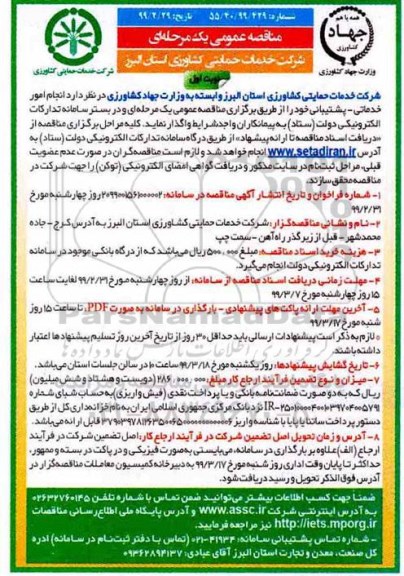 شماره: ۵۵/۴۰/۹۹/۴۲۹ تاریخ: ۹۹/۲/۲۹
مناقصه عمومی یک مرحله‌ای
شرکت خدمات حمایتی کشاورزی استان البرز
نوبت اول
همه با هم
جهاد
کشاورزی
وزارت جهاد کشاورزی
شرکت خدمات حمایتی کشاورزی
شرکت خدمات حمایتی کشاورزی استان البرز وابسته به وزارت جهاد کشاورزی در نظر دارد انجام امور
خدماتی - پشتیبانی خود را از طریق برگزاری مناقصه عمومی یک مرحله‌ای و در بستر سامانه تدارکات
الکترونیکی دولت (ستاد) به پیمانکاران واجد شرایط واگذار نماید. کلیه مراحل برگزاری مناقصه از
«دریافت اسناد مناقصه تا ارائه پیشنهاد» از طریق درگاه سامانه تدارکات الکترونیکی دولت (ستاد) به
آدرس www.setadiran.ir انجام خواهد شد و لازم است مناقصه‌گران در صورت عدم عضویت
قبلی، مراحل ثبت‌نام در سایت مذکور و دریافت گواهی امضای الکترونیکی (توکن) را جهت شرکت در
مناقصه محقق سازند.
۱- شماره فراخوان و تاریخ انتشار آگهی مناقصه در سامانه: روز چهارشنبه مورخ
۹۹/۲/۳۱
۲- نام و نشانی مناقصه‌گزار: شرکت خدمات حمایتی کشاورزی استان البرز به آدرس کرج - جاده
محمدشهر - قبل از زیرگذر راه‌آهن - سمت چپ
۳- هزینه خرید اسناد مناقصه: مبلغ ۵۰۰,۰۰۰ ریال می‌باشد که از درگاه بانکی موجود در سامانه
تدارکات الکترونیکی دولت انجام می‌گیرد.
۴- مهلت زمانی دریافت اسناد مناقصه از سامانه: از روز چهارشنبه مورخ ۹۹/۲/۳۱ لغایت ساعت
۱۵ روز چهارشنبه مورخ ۹۹/۳/۷
۵- آخرین مهلت ارائه پاکت‌های پیشنهادی - بارگذاری در سامانه به صورت PDF: تا ساعت ۱۵ روز
شنبه مورخ ۹۹/۳/۱۷
* لازم به ذکر است پیشنهادات ارسالی باید حداقل ۳۰ روز از تاریخ آخرین روز تسلیم پیشنهادها اعتبار
داشته باشند.
۶- تاریخ گشایش پیشنهادها: روز یکشنبه مورخ ۹۹/۳/۱۸ ساعت ۱۰ در سالن جلسات استان می‌باشد.
۷- میزان و نوع تضمین فرآیند ارجاع کار: مبلغ ۲۸۶,۰۰۰,۰۰۰ (دویست و هشتاد و شش میلیون)
ریال که به دو صورت ضمانت‌نامه بانکی و یا پرداخت نقدی (فیش واریزی) به حساب شبای شماره
نزد بانک مرکزی جمهوری اسلامی ایران به نام خزانه‌داری کل از طریق
دستور پرداخت ساتنا یا پایا با شناسه واریز قابل ارائه می‌باشد.
۸- آدرس و زمان تحویل اصل تضمین شرکت در فرآیند ارجاع کار: اصل تضمین شرکت در فرآیند
ارجاع (الف) علاوه بر بارگذاری در سامانه، می‌بایستی به صورت فیزیکی و در پاکت در بسته و ممهور،
حداکثر تا پایان وقت اداری روز شنبه مورخ ۹۹/۳/۱۷ به دبیرخانه کمیسیون معاملات مناقصه‌گزار در
آدرس فوق‌الذکر تحویل و رسید دریافت شود.
ضمناً جهت کسب اطلاعات بیشتر می‌توانید ضمن تماس با شماره تلفن ۰۲۶۳۲۷۶۰۱۴۵
به آدرس اینترنتی شرکت www.assc.ir و آدرس پایگاه ملی اطلاع‌رسانی مناقصات
http://iets.mporg.ir نیز مراجعه فرمایید.
* شماره تماس پشتیبانی سامانه: ۴۱۹۳۴-۰۲۱ (تماس با دفتر ثبت‌نام در سامانه) اداره
کل صنعت، معدن و تجارت استان البرز آقای عبادی: ۰۹۳۶۲۸۹۴۱۳۷